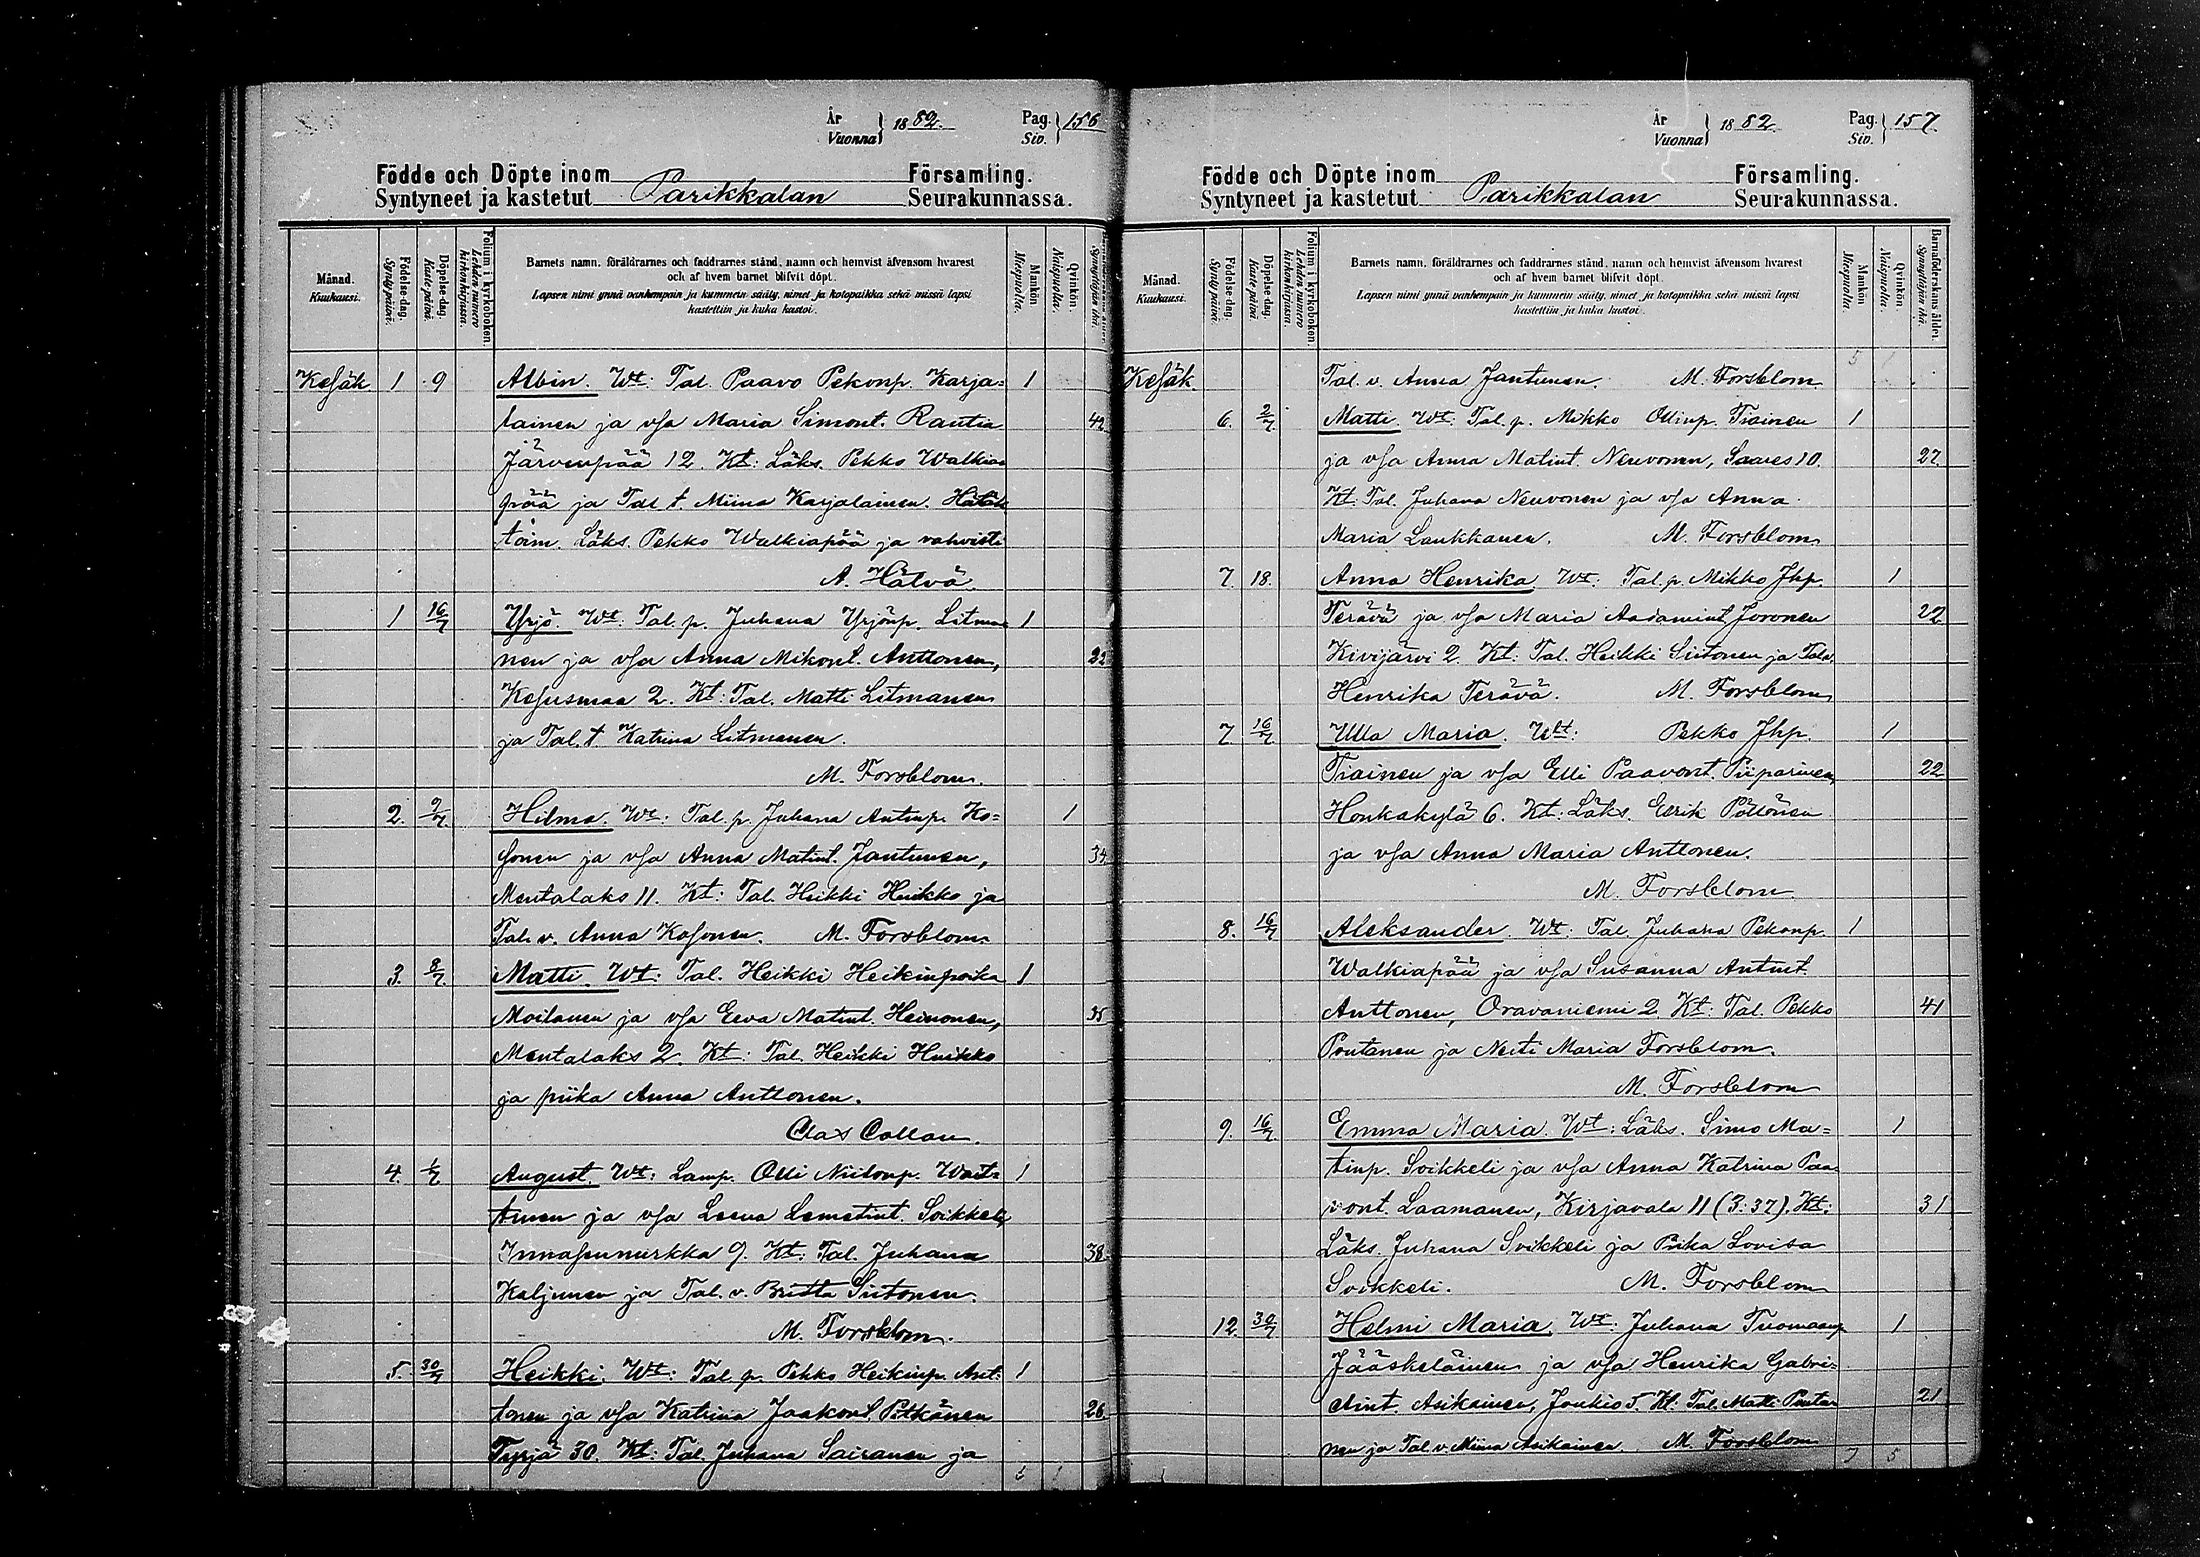 År
Vuonna } 1882. Pag.
Siv. } 156
Födde och Döpte inom Församling.
Syntyneet ja kastetut Parikkalan Seurakunnassa.
Månad.
Kuukausi.
Födelse-dag.
Synty päivä.
Döpelse-dag.
Kaste päivä.
Folium i kyrkoboken.
Lehden numero kirkonkirjassa.
Barnets namn, föräldrarnes och faddrarnes stånd, namn och hemvist äfvensom hvarest
och af hvem barnet blifvit döpt.
Lapsen nimi ynnä vanhempain ja kummein sääty, nimet ja kotopaikka sekä missä lapsi
kastettiin ja kuka kastoi.
Mankön
Miespuolta.
Qvinkön.
Naispuolta.
Synnyttäjän ikä.
Kesäk 1 9 Albin. Wt: Tal. Paavo Pekonp. Karja= 1
lainen ja vsa Maria Simont. Rautia 42
Järvenpää 12. Kt: Läks. Pekko Walkia=
pää ja Tal. t. Miina Karjalainen. Hätäk
toim. Läks. Pekko Walkiapää ja vahvisti
A. Hälvä.
1 16/7 Yrjö. Wt: Tal. p. Juhana Yrjönp. Litma= 1
nen ja vsa Anna Mikont. Anttonen, 22
Kesusmaa 2. Kt: Tal. Matti Litmanen
ja Tal. t Katrina Litmanen.
M. Forsblom.
2. 2/7 Hilma. Wt: Tal. p. Juhana Antinp. Ko= 1
sonen ja vsa Anna Matint. Jantunen, 34
Mentalaks 11. Kt: Tal. Heikki Huikko ja
Tal. v. Anna Kosonen. M. Forsblom.
3. 8/7. Matti. Wt: Tal. Heikki Heikinpoika 1
Moilanen ja vsa Eeva Matint. Heinonen, 35
Mentalaks 2. Kt: Tal. Heikki Huikko
ja piika Anna Anttonen.
Clas Collan.
4. 1/7 August. Wt: Lamp. Olli Niilonp. Wait= 1
tinen ja vsa Leena Lemetint. Soikkeli
Innasennurkka 9. Kt: Tal. Juhana 38.
Kaljunen ja Tal. v. Britta Siitonen.
M. Forsblom.
5. 30/7 Heikki. Wt: Tal. p. Pekko Heikinp. Ant= 1
tonen ja vsa Katrina Jaakont. Pitkänen 26
Tyrjä 30. Kt: Tal. Juhana Sairanen ja
År
Vuonna } 1882 Pag.
Siv. } 157.
Födde och Döpte inom Församling.
Syntyneet ja kastetut Parikkalan Seurakunnassa.
Månad.
Kuukausi.
Födelse-dag.
Synty päivä.
Döpelse-dag.
Kaste päivä.
Folium i kyrkoboken.
Lehden numero kirkonkirjassa.
Barnets namn, föräldrarnes och faddrarnes stånd, namn och hemvist äfvensom hvarest
och af hvem barnet blifvit döpt.
Lapsen nimi ynnä vanhempain ja kummein sääty, nimet ja kotopaikka sekä missä lapsi
kastettiin ja kuka kastoi.
Mankön
Miespuolta.
Qvinkön.
Naispuolta.
Barnaföderskans ålder.
Synnyttäjän ikä.
5 1
Kesäk. Tal. v. Anna Jantunen. M. Forsblom.
6. 2/7 Matti. Wt: Tal. p. Mikko Ollinp. Tiainen 1
ja vsa Anna Matint. Neuvonen, Saares 10. 27.
Kt: Tal. Juhana Neuvonen ja vsa Anna
Maria Laukkanen. M. Forsblom
7. 18. Anna Henrika Wt: Tal. p. Mikko Jhp. 1
Terävä ja vsa Maria Aadamint. Joronen 22
Kivijärvi 2. Kt: Tal. Heikki Siitonen ja Tal. v.
Henrika Terävä. M. Forsblom
7. 16/7 Ulla Maria. Wt: Pekko Jhp. 1
Tiainen ja vsa Elli Paavont. Piiparinen, 22
Honkakylä 6. Kt: Läks. Eerik Pöllönen
ja vsa Anna Maria Anttonen.
M. Forsblom
8. 16/7 Aleksander. Wt: Tal. Juhana Pekonp. 1
Walkiapää ja vsa Susanna Antint.
Anttonen, Oravaniemi 2. Kt: Tal. Pekko 41
Poutanen ja Neiti Maria Forsblom.
M. Forsblom
9. 16/7. Emma Maria. Wt: Läks. Simo Ma= 1
tinp. Soikkeli ja vsa Anna Katrina Paa=
vont. Laamanen, Kirjavala 11 (3:37). Kt: 31
Läks. Juhana Soikkeli ja Piika Lovisa
Soikkeli. M. Forsblom
12. 30/7 Helmi Maria. Wt: Juhana Tuomaanp 1
Jääskeläinen ja vsa Henrika Gabri=
elint. Asikainen, Joukio 5. Kt: Tal. Matti Pouta= 21
nen ja Tal. v. Miina Asikainen. M. Forsblom
7 5